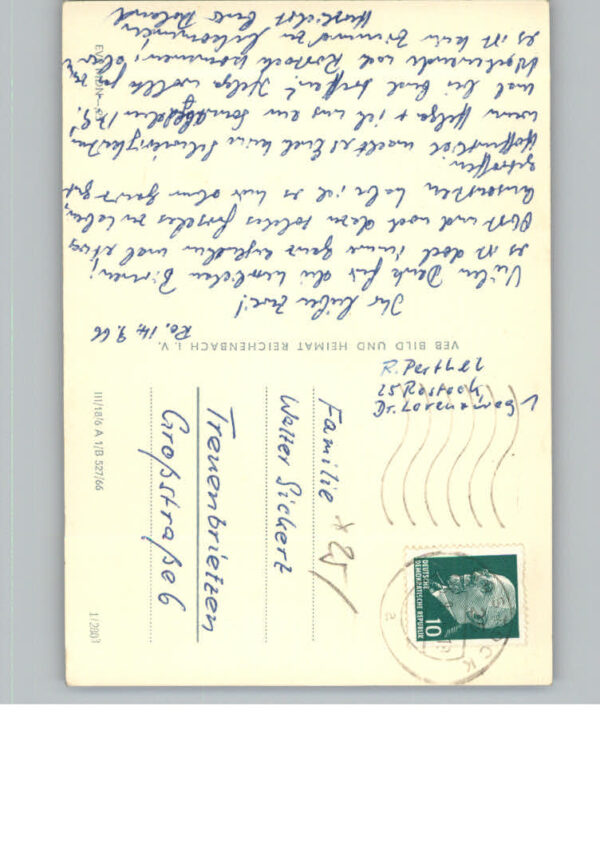 Ro. 14.9.66
Ihr lieben Zwei!
Vielen Dank für die herrlichen Birnen,
es ist doch immer ganz was
Obst und noch dazu solches frisches zu haben,
Ansonsten habe ich es hier oben ganz gut
getroffen.
Hoffentlich macht es Euch keine Schwierigkeiten,
wenn Helga + ich uns am Sonnabend den 17.9.
mal bei Euch treffen! Helga wollte zu
Wochenende nach Rostock kommen, aber
es ist kein Zimmer zu bekommen
Herzlichst Euer Roland
VEB BILD UND HEIMAT REICHENBACH i. V.
III/18/6 A 1/B 527/66
1/2803
R. Perthel
25 Rostock
Dr. Lorenzweg 1
DEUTSCHE
DEMOKRATISCHE REPUBLIK
10
Familie
Walter Sickert
Treuenbrietzen
Großstraße 6